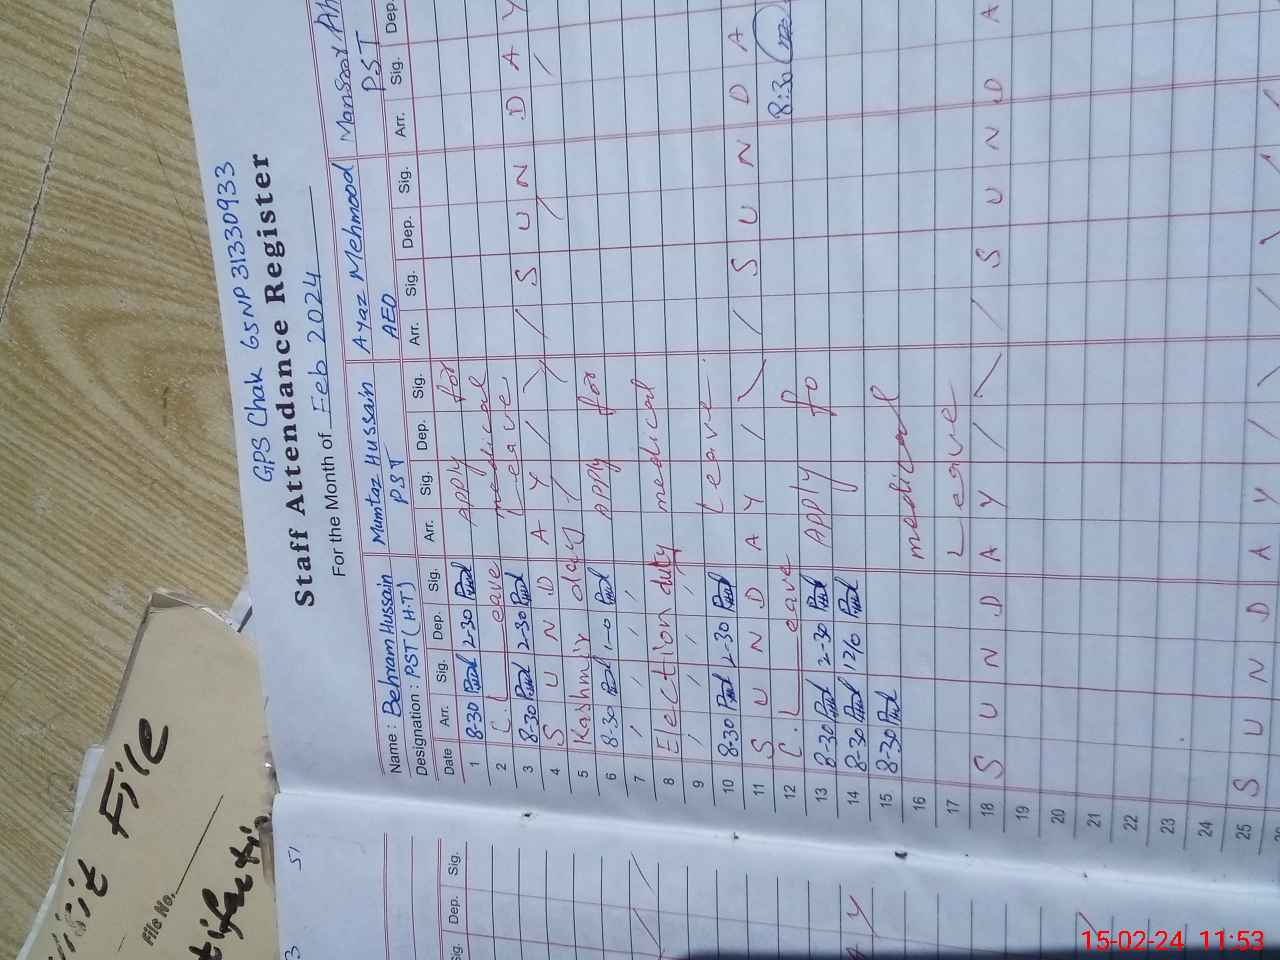 GPS Chak 65NP 31330933
Staff Attendance Register
For the Month of Feb 2024
Name : Behram Hussain Mumtaz Hussain Ayaz Mehmood Mansoor Ah
Designation : PST (H.T) PST AEO PST
Date Arr. Sig. Dep. Sig. Arr. Sig. Dep. Sig. Arr. Sig. Dep. Sig. Arr. Sig. Dep.
1 8-30 2-30 Apply for
2 C. Leave medical
3 8-30 2-30 Leave
4 S U N D A Y / S U N D A Y
5 Kashmir day
6 8-30 1-0 Apply for
7
8 Election duty medical
9
10 8-30 2-30 Leave
11 S U N D A Y / S U N D A
12 C. Leave 8:30
13 8-30 2-30 Apply fo
14 8-30 12/0
15 8-30
16 medical
17 Leave
18 S U N D A Y / S U N D A
19
20
21
22
23
24
25 S U N D A Y
Sig. Dep. Sig.
Y
51
3
File
File No.
15-02-24 11:53